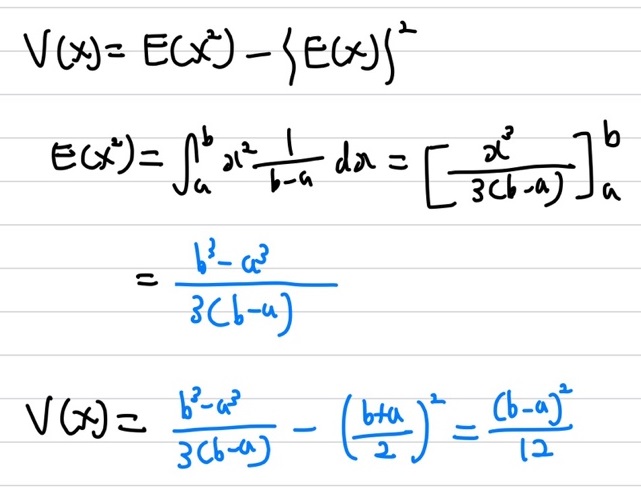 V(x) = E(x²) - {E(x)}²
E(x²) = ∫ₐᵇ x² 1/(b-a) dx = [x³/3(b-a)]ₐᵇ
= b³-a³/3(b-a)
V(x) = b³-a³/3(b-a) - (b+a/2)² = (b-a)²/12